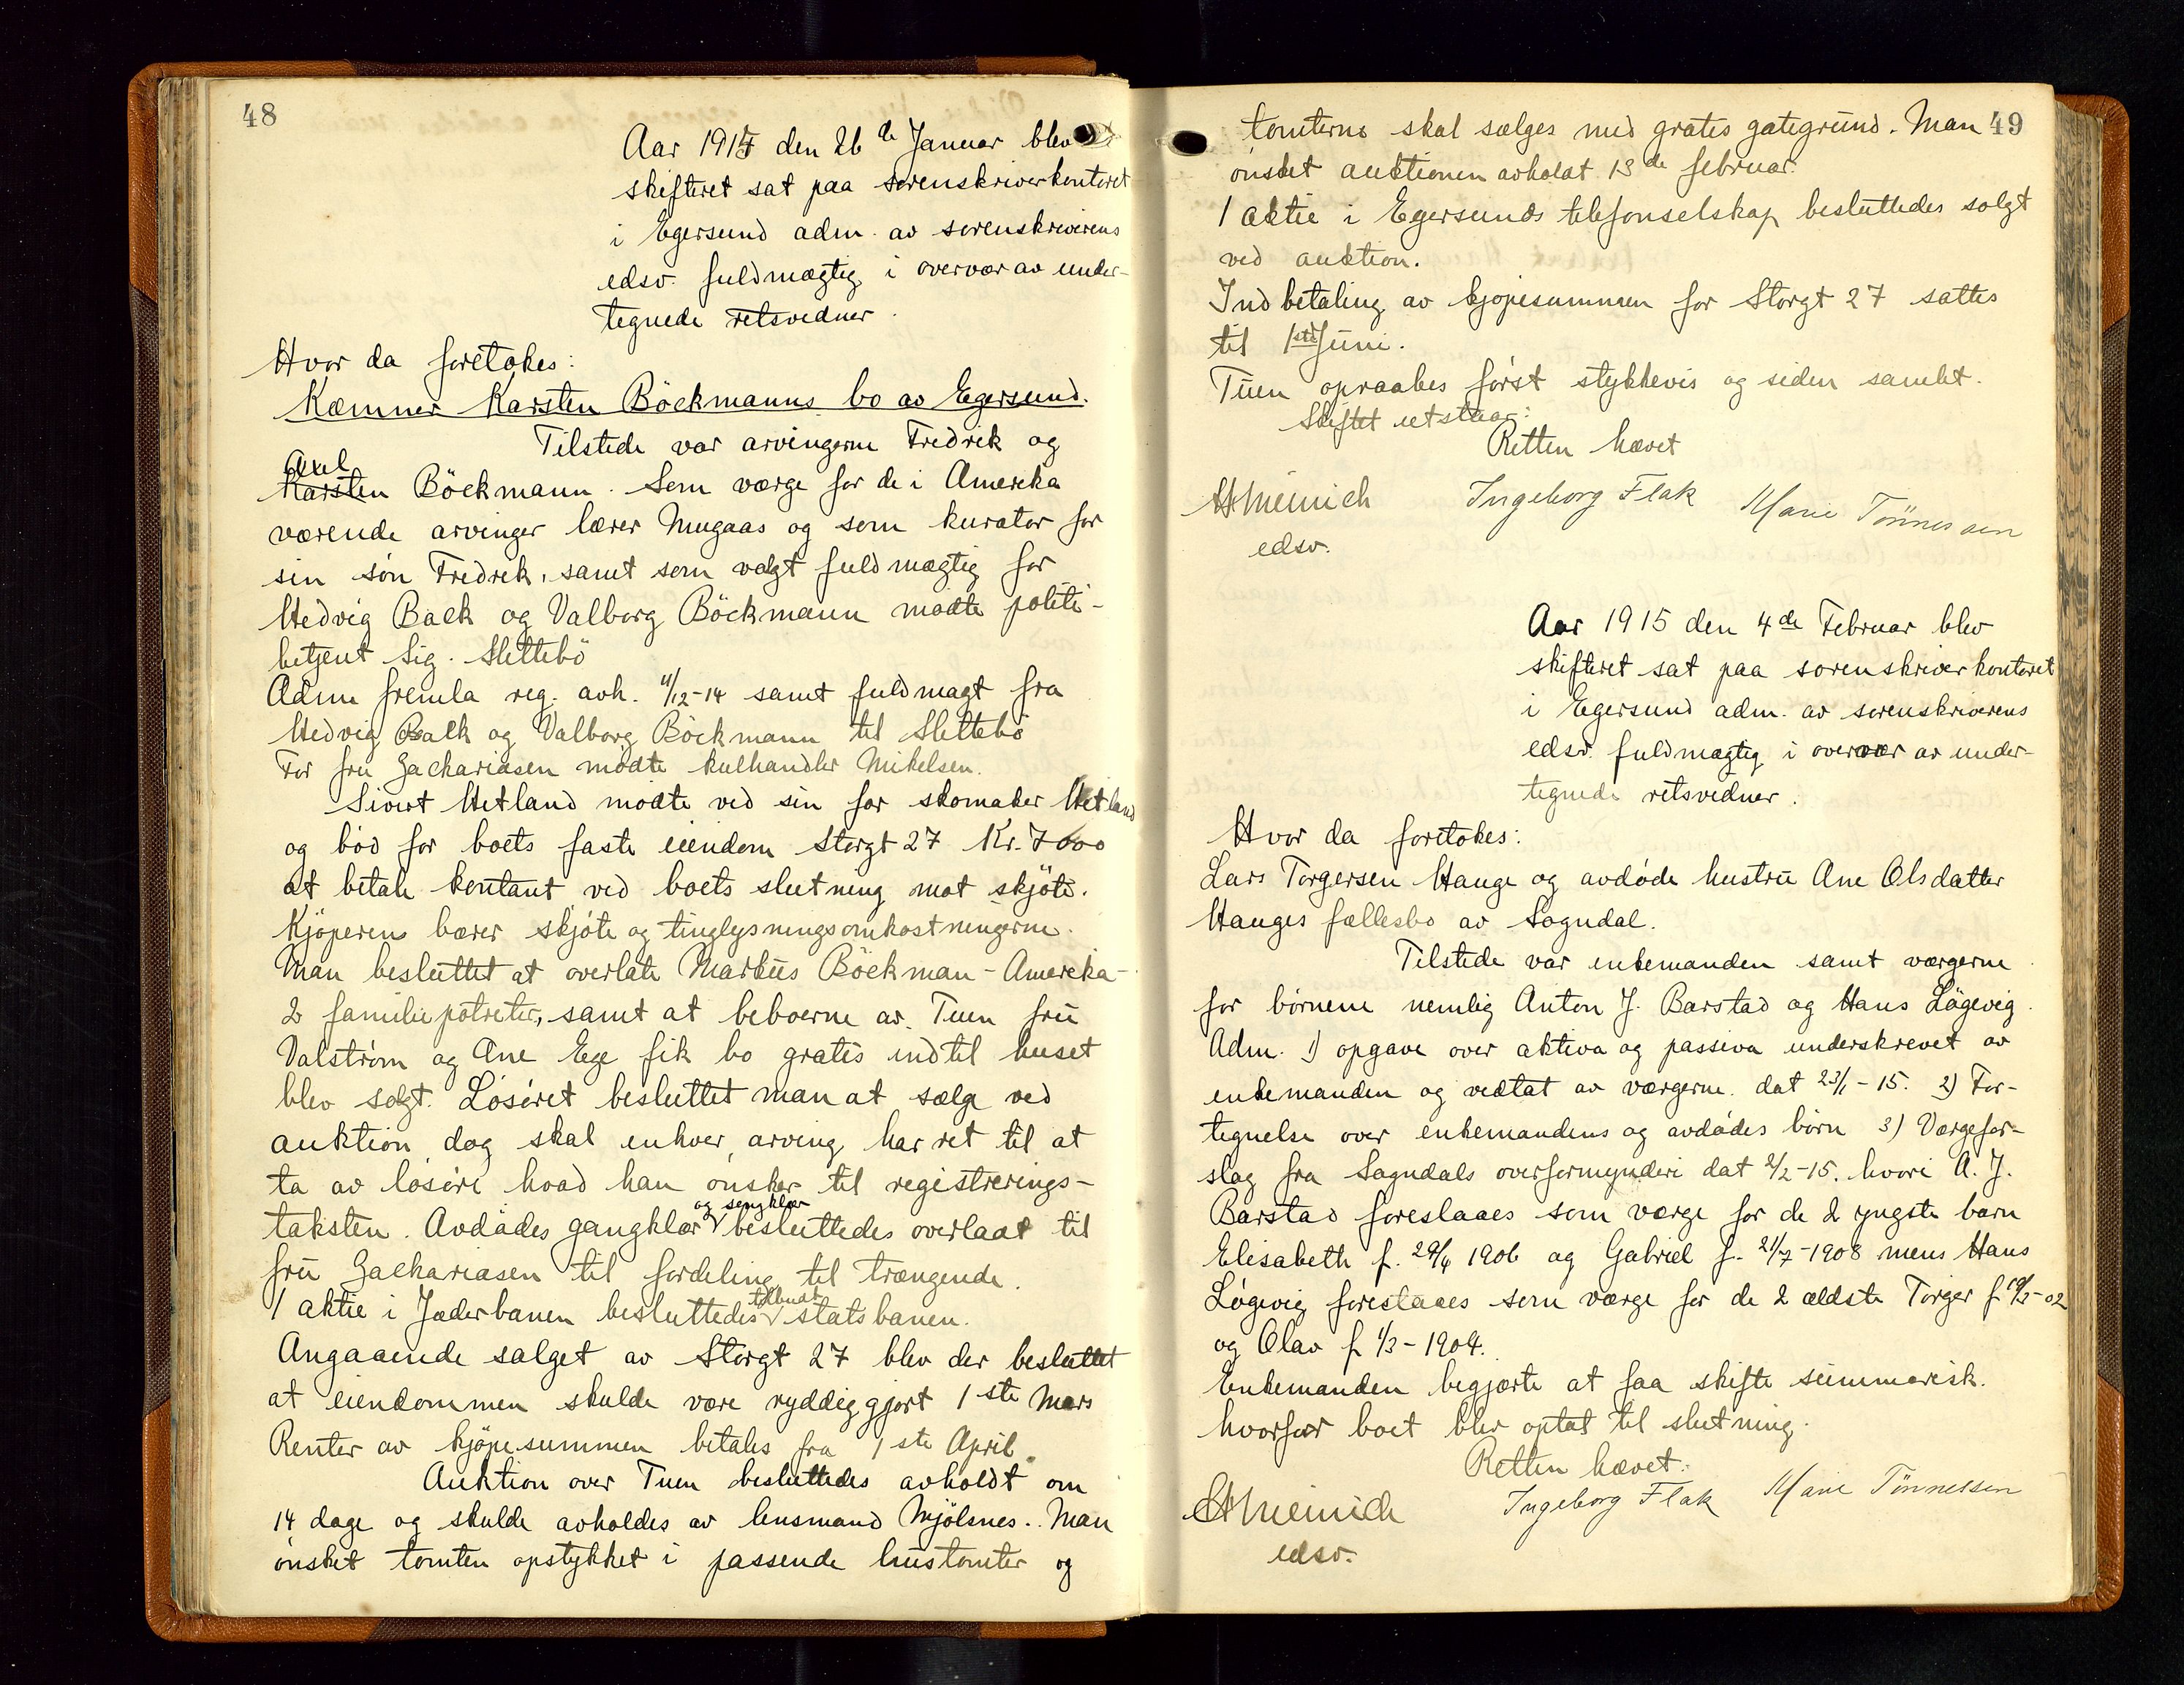 48
Aar 1915 den 26 de Januar blev
skifteret sat paa sorenskriverkontoret
i Egersund adm. av sorenskriverens
edsv. fuldmægtig i overvær av under-
tegnede retsvidner.
Hvor da foretokes:
Kæmner Karsten Böckmanns bo av Egersund.
Tilstede var arvingerne Fredrik og
Axel
Karsten Böckmann. Som værge for de i Amerika
værende arvinger lærer Mugaas og som kurator for
sin sön Fredrik, samt som valgt fuldmægtig for
Hedvig Balk og Valborg Böckmann mödte politi-
betjent Sig. Slettebö
Adm fremla reg. avh. 11/12-14 samt fuldmagt fra
Hedvig Balk og Valborg Böckmann til Slettebö
For fru Zachariasen mödte kulhandler Mikelsen.
Sivert Hetland mödte ved sin far skomaker Hetland
og böd for boets faste eiendom Storgt 27 Kr. 7000
at betale kontant ved boets slutning mot skjöte.
Kjöperens bærer skjöte og tinglysningsomkostningerne.
Man besluttet at overlate Markus Böckman - Amerika -
2 familiepotreter, samt at beboerne av Tuen fru
Valström og Ane Ege fik bo gratis indtil huset
blev solgt. Lösöret besluttet man at sælge ved
auktion, dog skal enhver arving har ret til at
ta av lösöre hvad han önsker til registrerings-
og sengklær
taksten. Avdödes gangklær besluttedes overlaat til
fru Zachariasen til fordeling til trængende.
tilbudt
1 aktie i Jæderbanen besluttedes statsbanen.
Angaaende salget av Storgt 27 blev der besluttet
at eiendommen skulde være ryddiggjort 1ste Mars
Renter av kjöpesummen betales fra 1ste April.
Auktion over Tuen besluttedes avholdt om
14 dage og skulde avholdes av lensmand Mjölsnes. Man
önsket tomten opstykket i passende hustomter og
49
tomterne skal sælges med gratis gategrund. Man
önsket auktionen avholdt 13de februar.
1 aktie i Egersunds telefonselskap besluttedes solgt
ved auktion.
Indbetaling av kjöpesummen for Storgt 27 sattes
til 1ste Juni.
Tuen opraabes först stykkevis og siden samlet.
Skiftet utstaar:
Retten hævet
Ingeborg Flak Marie Tönnessen
edsv.
Aar 1915 den 4de Februar blev
skifteret sat paa sorenskriverkontoret
i Egersund adm. av sorenskriverens
edsv. fuldmægtig i overvær av under-
tegnede retsvidner.
Hvor da foretokes:
Lars Torgersen Hauge og avdöde hustru Ane Olsdatter
Hauges fællesbo av Sogndal.
Tilstede var enkemanden samt værgerne
for börnene nemlig Anton J. Barstad og Hans Lögevig.
Adm. 1) opgave over aktiva og passiva underskrevet av
enkemanden og vedtat av værgerne dat 23/1-15. 2) For-
tegnelse over enkemandens og avdödes börn 3) Værgefor-
slag fra Sogndals overformynderi dat 2/2-15. hvori A. J.
Barstad foreslaaes som værge for de 2 yngste barn
Elisabeth f. 29/4 1906 og Gabriel f. 21/7-1908 mens Hans
Lögevig foreslaaes som værge for de 2 ældste Torger f 19/3-02
og Olav f 1/3-1904.
Enkemanden begjærte at faa skifte summarisk.
hvorfor boet blev optat til slutning.
Retten hævet.
Ingeborg Flak Marie Tönnessen
edsv.